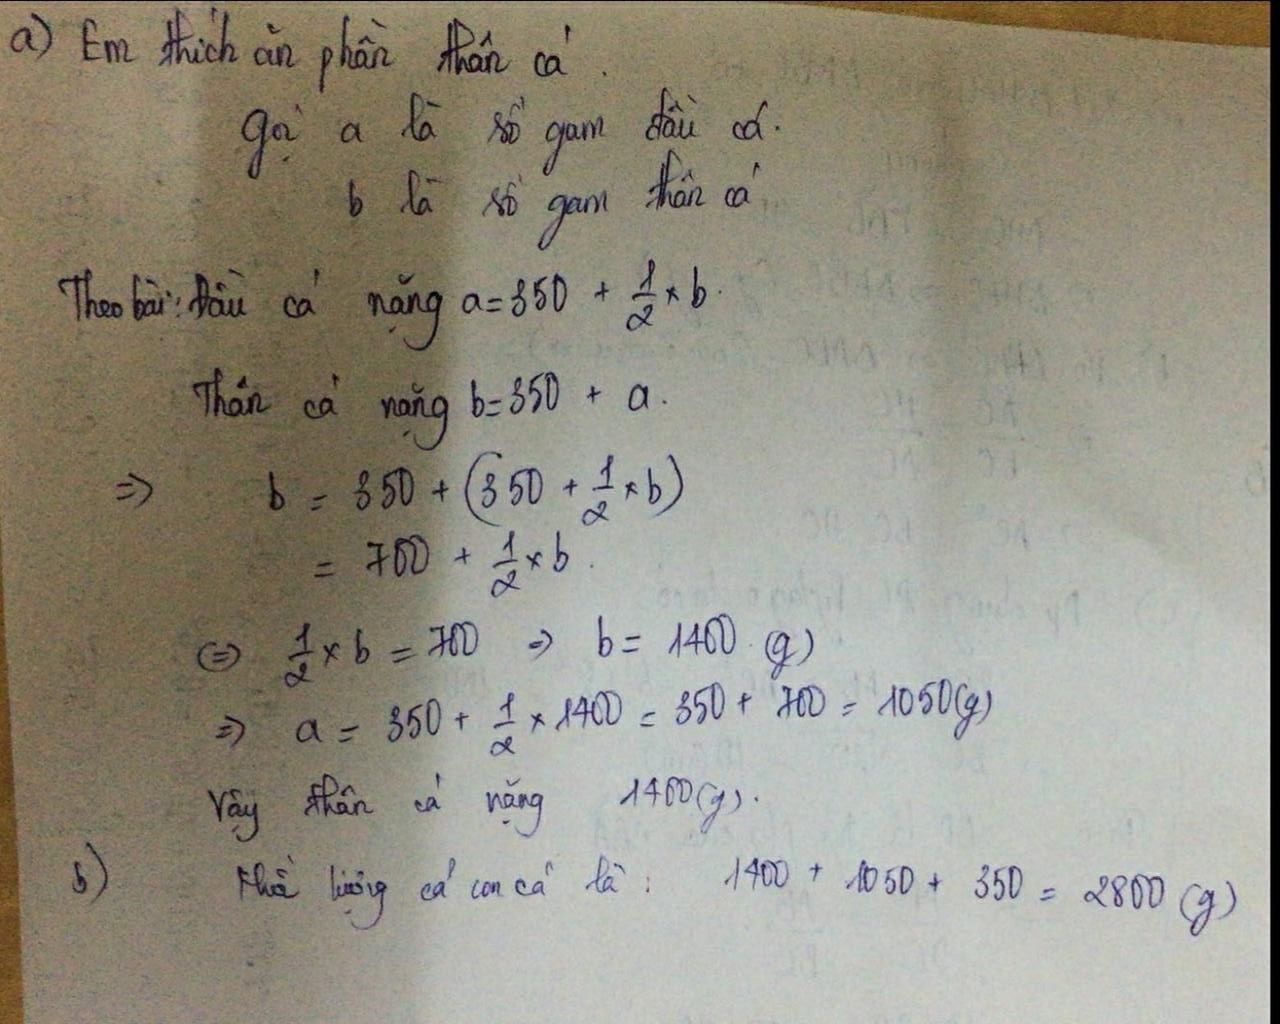 a) Em thích ăn phần thân cá.
Gọi a là số gam đầu cá.
b là số gam thân cá
Theo bài: Đầu cá nặng a = 350 + 1/2 × b.
Thân cá nặng b = 350 + a.
=> b = 350 + (350 + 1/2 × b)
= 700 + 1/2 × b.
<=> 1/2 × b = 700 => b = 1400 (g)
=> a = 350 + 1/2 × 1400 = 350 + 700 = 1050(g)
Vậy thân cá nặng 1400(g).
b) Khối lượng cả con cá là: 1400 + 1050 + 350 = 2800 (g)